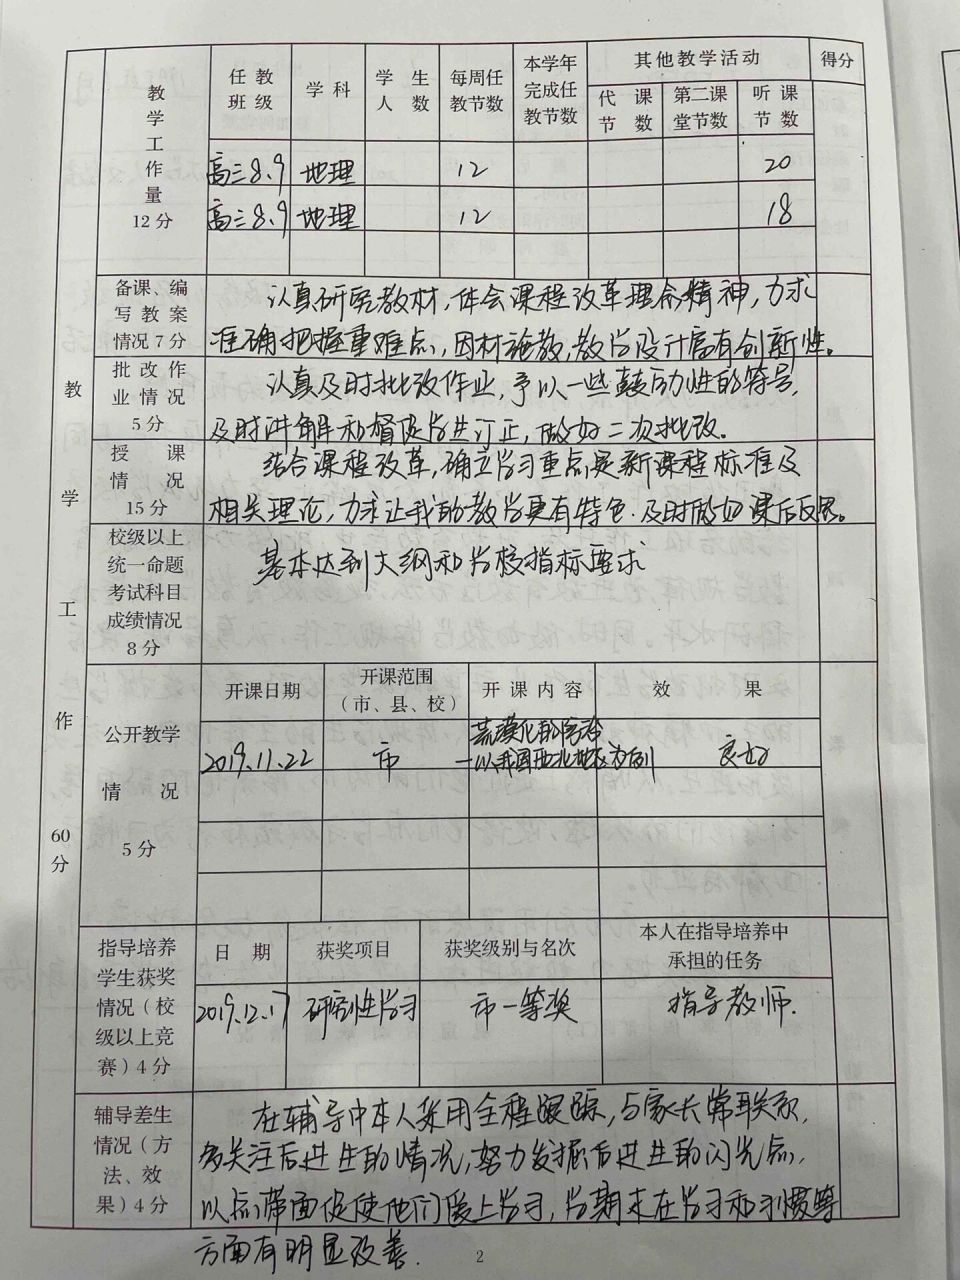 教学工作60分
教学工作量12分
任教班级 学科 学生人数 每周任教节数 本学年完成任教节数 其他教学活动 得分
代课节数 第二课堂节数 听课节数
高三8.9 地理 12 20
高三8.9 地理 12 18
备课、编写教案情况7分
认真研究教材,体会课程改革理念精神,力求
准确把握重难点,因材施教,教学设计富有创新性。
批改作业情况5分
认真及时批改作业,予以一些鼓励性的符号,
及时讲解和督促学生订正,做好二次批改。
授课情况15分
结合课程改革,确立学习重点是新课程标准及
相关理论,力求让我的教学更有特色.及时做好课后反思。
校级以上统一命题考试科目成绩情况8分
基本达到大纲和学校指标要求
公开教学情况5分
开课日期 开课范围(市、县、校) 开课内容 效果
2019.11.22 市 荒漠化的防治
—以我国西北地区为例 良好
指导培养学生获奖情况(校级以上竞赛)4分
日期 获奖项目 获奖级别与名次 本人在指导培养中承担的任务
2019.12.17 研究性学习 市一等奖 指导教师.
辅导差生情况(方法、效果)4分
在辅导中本人采用全程跟踪,与家长常联系,
多关注后进生的情况,努力发掘后进生的闪光点,
以点带面促使他们爱上学习,学期末在学习和习惯等
方面有明显改善.
2